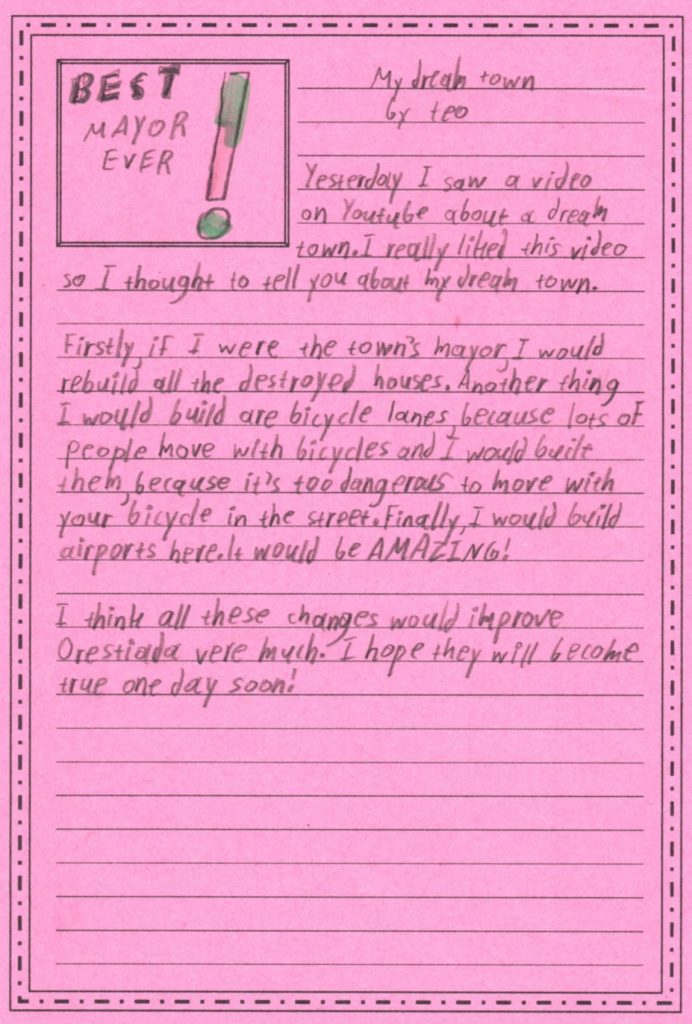 BEST
MAYOR
EVER
!
My dream town
by teo
Yesterday I saw a video
on Youtube about a dream
town. I really liked this video
so I thought to tell you about my dream town.
Firstly, if I were the town's mayor, I would
rebuild all the destroyed houses. Another thing
I would build are bicycle lanes, because lots of
people move with bicycles and I would built
them, because it's too dangerous to move with
your bicycle in the street. Finally, I would build
airports here. It would be AMAZING!
I think all these changes would improve
Orestiada vere much. I hope they will become
true one day soon!